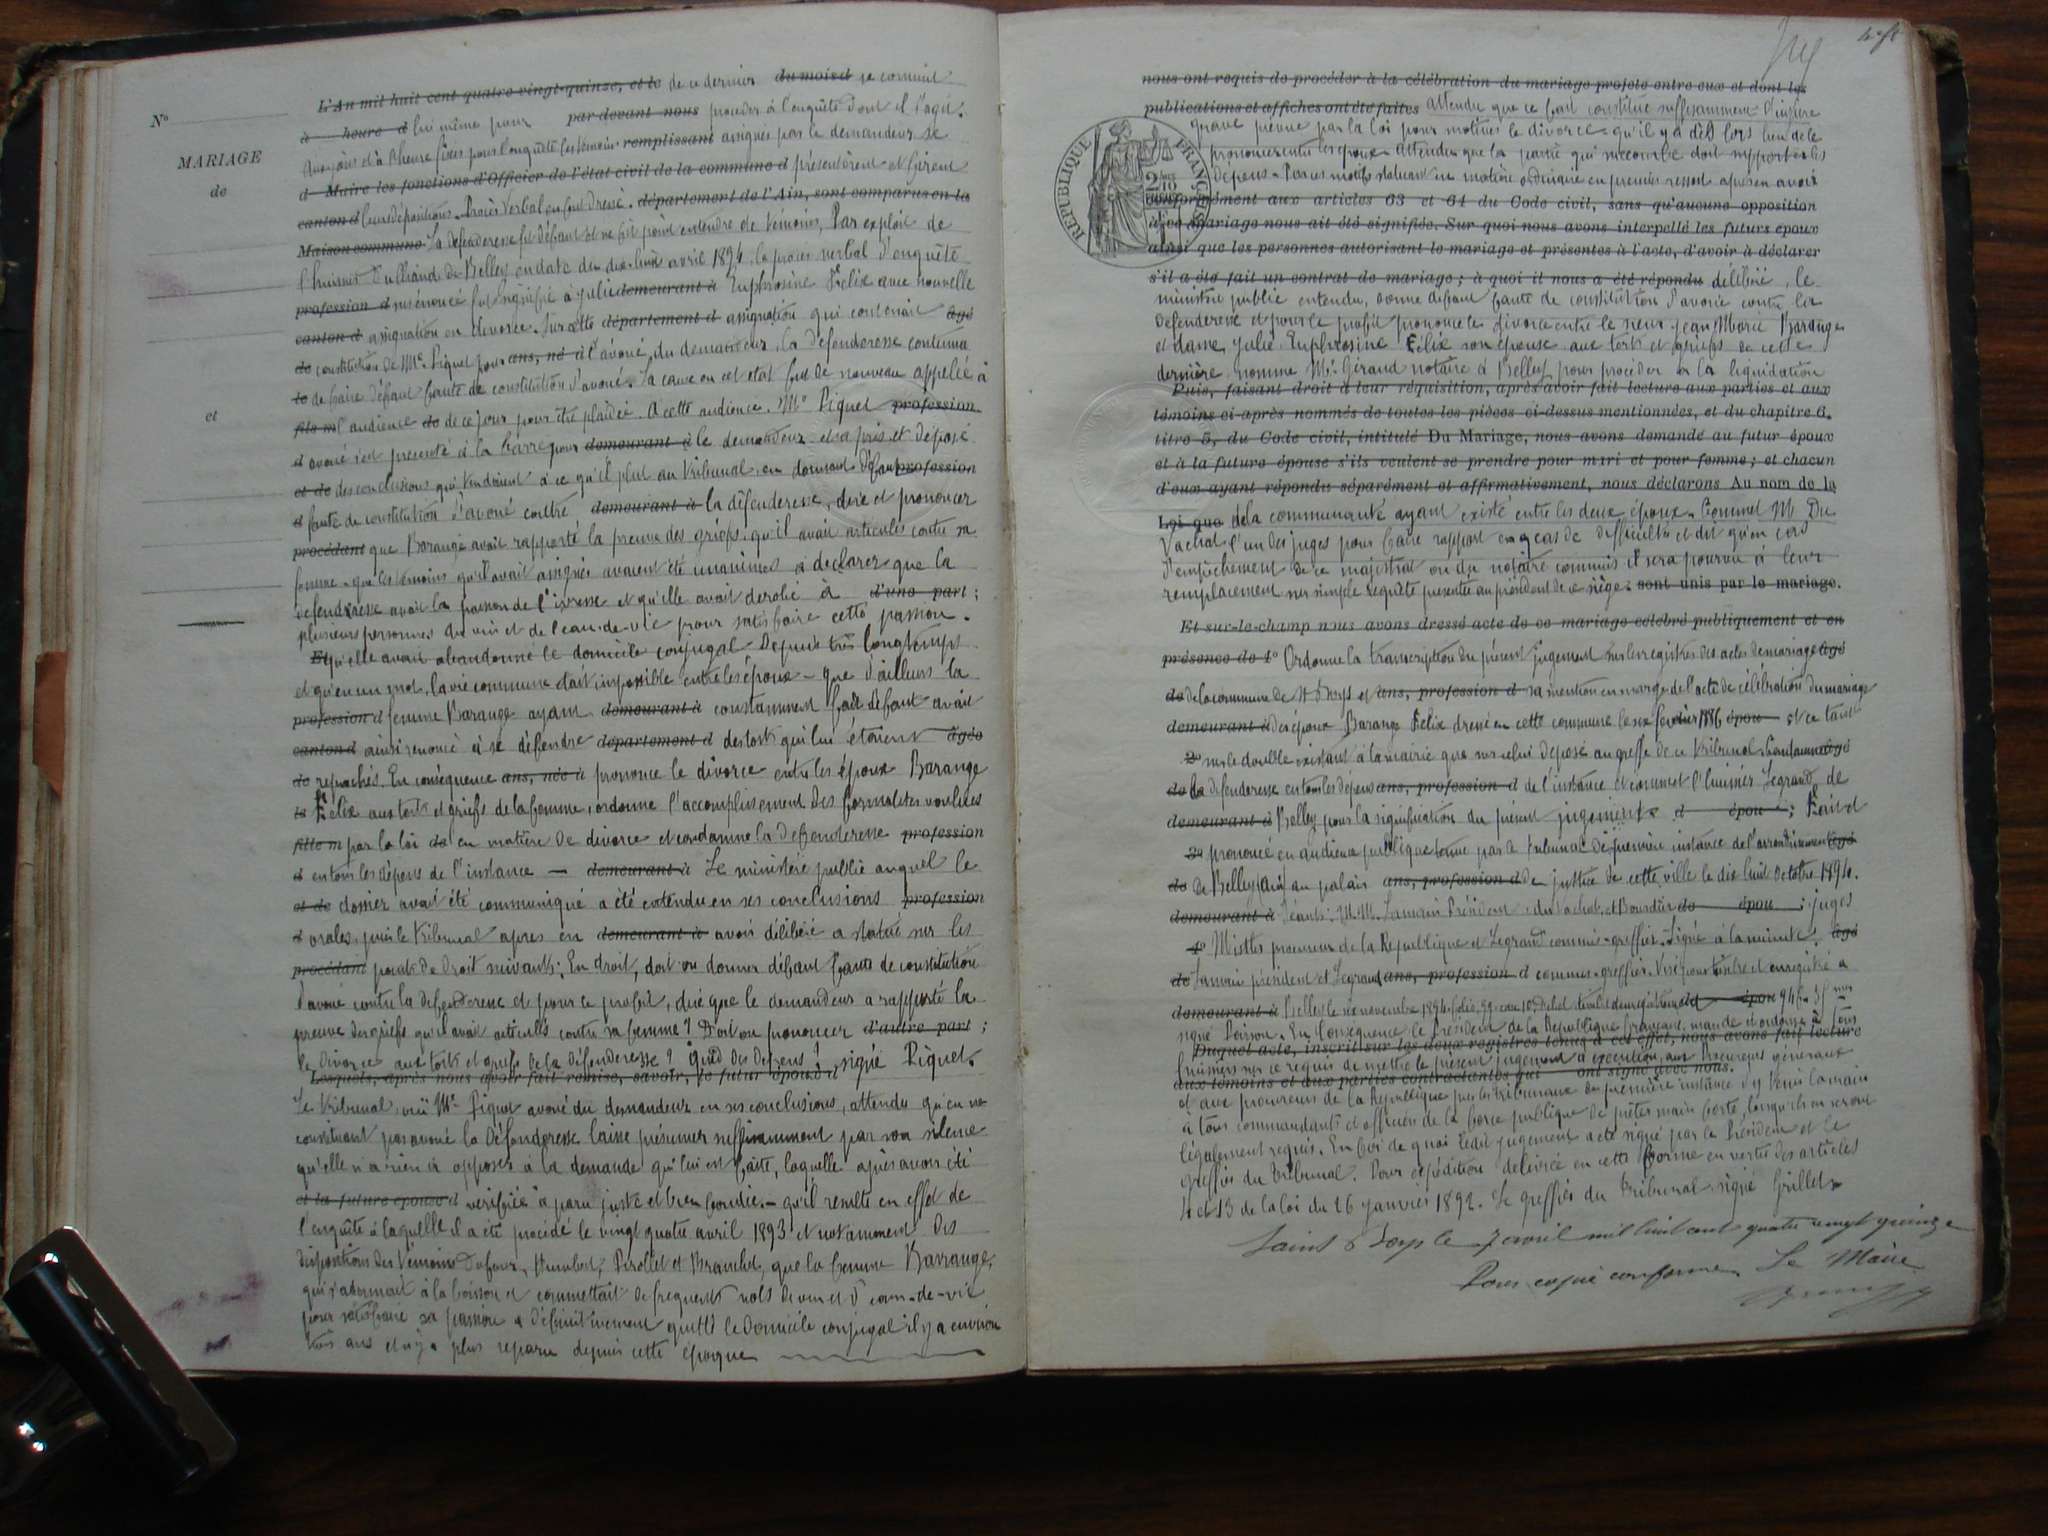 N°
MARIAGE
de
et
L'An mil huit cent quatre-vingt-quinze, et le de ce dernier du mois d se commit
à heure d lui même pour par devant nous procéder à l'enquête dont il s'agit.
Aux jour et à l'heure fixés pour l'enquête les témoins remplissant assignés par le demandeur se
d Maire les fonctions d'Officier de l'état civil de la commune d présentèrent et firent
canton d leurs dépositions. Procès verbal en fut dressé. département de l'Ain, sont comparus en la
Maison commune La défenderesse fit défaut et ne fit point entendre de témoins. Par exploit de
l'huissier de Belley en date du dix-huit avril 1894, le procès verbal d'enquête
profession d susénoncé fut signifié à Julie demeurant à Euphrosine Félix avec nouvelle
canton d assignation en divorce. Sur cette département d assignation qui contenait âgé
de constitution de Me. Piquet pour ans, né à l'avoué du demandeur, la défenderesse continua
le de faire défaut faute de constitution d'avoué. La cause en cet état fut de nouveau appelée à
fils m l'audience de de ce jour pour être plaidée. A cette audience. Me Piquet profession
d avoué s'est présenté à la barre pour demeurant à le demandeur et a pris et déposé
et de des conclusions qui tendaient à ce qu'il plut au tribunal, en donnant défaut profession
d faute de constitution d'avoué contre demeurant à la défenderesse, dire et prononcer
procédant que Barange avait rapporté la preuve des griefs qu'il avait articulés contre sa
femme, que les témoins qu'il avait assignés avaient été unanimes à déclarer que la
défenderesse avait la passion de l'ivresse et qu'elle avait dérobé à d'une part;
plusieurs personnes du vin et de l'eau-de-vie pour satisfaire cette passion.
Et qu'elle avait abandonné le domicile conjugal depuis très longtemps
et qu'en un mot, la vie commune était impossible entre les époux - que d'ailleurs la
profession d femme Barange ayant demeurant à constamment fait défaut avait
canton d ainsi renoncé à se défendre département d des torts qui lui étaient âgée
de reprochés. En conséquence ans, née à prononce le divorce entre les époux Barange
le Félix aux torts et griefs de la femme, ordonne l'accomplissement des formalités voulues
fille m par la loi de en matière de divorce et condamne la défenderesse profession
d en tous les dépens de l'instance — demeurant à Le ministère public auquel le
et de dossier avait été communiqué a été entendu en ses conclusions profession
d orales, puis le tribunal après en demeurant à avoir délibéré a statué sur les
procédant points de droit suivants: En droit, doit on donner défaut faute de constitution
d'avoué contre la défenderesse et pour le profit, dire que le demandeur a rapporté la
preuve des griefs qu'il avait articulés contre sa femme? Doit on prononcer d'autre part;
le divorce aux torts et griefs de la défenderesse? Quid des dépens? signé Piquet.
Lesquels, après nous avoir fait remise, savoir, le futur époux d
Le tribunal, ouï Me. Piquet avoué du demandeur en ses conclusions, attendu qu'en ne
constituant pas avoué la défenderesse laisse présumer suffisamment par son silence
qu'elle n'a rien à opposer à la demande qui lui est faite, laquelle après avoir été
et la future épouse d vérifiée a paru juste et bien fondée. - qu'il résulte en effet de
l'enquête à laquelle il a été procédé le vingt quatre avril 1893 et notamment des
dépositions des témoins Dufour, Humbert, Perollet et Branchet, que la femme Barrange,
qui s'adonnait à la boisson et commettait de fréquents vols de vin et d'eau-de-vie
pour satisfaire sa passion a définitivement quitté le domicile conjugal il y a environ
trois ans et n'y a plus reparu depuis cette époque
nous ont requis de procéder à la célébration du mariage projeté entre eux et dont les
publications et affiches ont été faites Attendu que ce fait constitue suffisamment l'injure
grave prévue par la loi pour motiver le divorce, qu'il y a dès lors lieu de le
prononcer entre les époux. Attendu que la partie qui succombe doit supporter les
dépens. Par ces motifs statuant en matière ordinaire en premier ressort après en avoir
RÉPUBLIQUE FRANÇAISE
conformément aux articles 63 et 64 du Code civil, sans qu'aucune opposition
à ce mariage nous ait été signifiée. Sur quoi nous avons interpellé les futurs époux
ainsi que les personnes autorisant le mariage et présentes à l'acte, d'avoir à déclarer
s'il a été fait un contrat de mariage; à quoi il nous a été répondu délibéré, le
ministère public entendu, donne défaut faute de constitution d'avoué contre la
défenderesse et pour le profit prononce le divorce entre le sieur Jean Marie Barange
et dame Julie Euphrosine Félix son épouse aux torts et griefs de cette
dernière, nomme Me. Gérand notaire à Belley pour procéder à la liquidation
Puis, faisant droit à leur réquisition, après avoir fait lecture aux parties et aux
témoins ci-après nommés de toutes les pièces ci-dessus mentionnées, et du chapitre 6,
titre 5, du Code civil, intitulé Du Mariage, nous avons demandé au futur époux
et à la future épouse s'ils veulent se prendre pour mari et pour femme; et chacun
d'eux ayant répondu séparément et affirmativement, nous déclarons Au nom de la
Loi que de la communauté ayant existé entre les deux époux. Commet M. Du
Vachat l'un des juges pour faire rapport en cas de difficulté et dit qu'en cas
d'empêchement de ce magistrat ou du notaire commis il sera pourvu à leur
remplacement sur simple requête présentée au président de ce siège. sont unis par le mariage.
Et sur-le-champ nous avons dressé acte de ce mariage célébré publiquement et en
présence de 1° Ordonne la transcription du présent jugement sur les registres des actes de mariage âgé
de de la commune de St Boys et ans, profession d sa mention en marge de l'acte de célébration du mariage
demeurant à des époux Barange Félix dressé en cette commune le six février 1886 épou et ce tant
2° sur le double existant à la mairie que sur celui déposé au greffe de ce tribunal. Condamne âgé
de la défenderesse en tous les dépens ans, profession d de l'instance et commet l'huissier Legrand de
demeurant à Belley pour la signification du présent jugement d épou ; Fait et
3° prononcé en audience publique tenue par le tribunal de première instance de l'arrondissement âgé
de de Belley (Ain) au palais ans, profession d de justice de cette ville le dix huit octobre 1894.
demeurant à Séants: M.M. Lamain Président, du Vachat et Bourdin de épou ; juges
4° procureur de la République et Legrand commis-greffier. Signé à la minute: âgé
de Lamain président et Legrand ans, profession d commis-greffier. Visé pour timbre et enregistré à
demeurant à Belley le six novembre 1894
signé Poisson. En conséquence le Président de la République française mande et ordonne à tous
Duquel acte, inscrit sur les deux registres tenus à cet effet, nous avons fait lecture
huissiers sur ce requis de mettre le présent jugement à exécution, aux Procureurs généraux
aux témoins et aux parties contractantes qui ont signé avec nous.
et aux procureurs de la République près les tribunaux de première instance d'y tenir la main
à tous commandants et officiers de la force publique de prêter main forte, lorsqu'ils en seront
légalement requis. En foi de quoi ledit jugement a été signé par le Président et le
greffier du tribunal. Pour expédition délivrée en cette forme en vertu des articles
4 et 13 de la loi du 26 janvier 1892. Le greffier du tribunal signé Grillet.
Saint Boys le 7 avril mil huit cent quatre vingt quinze
Pour copie conforme Le Maire